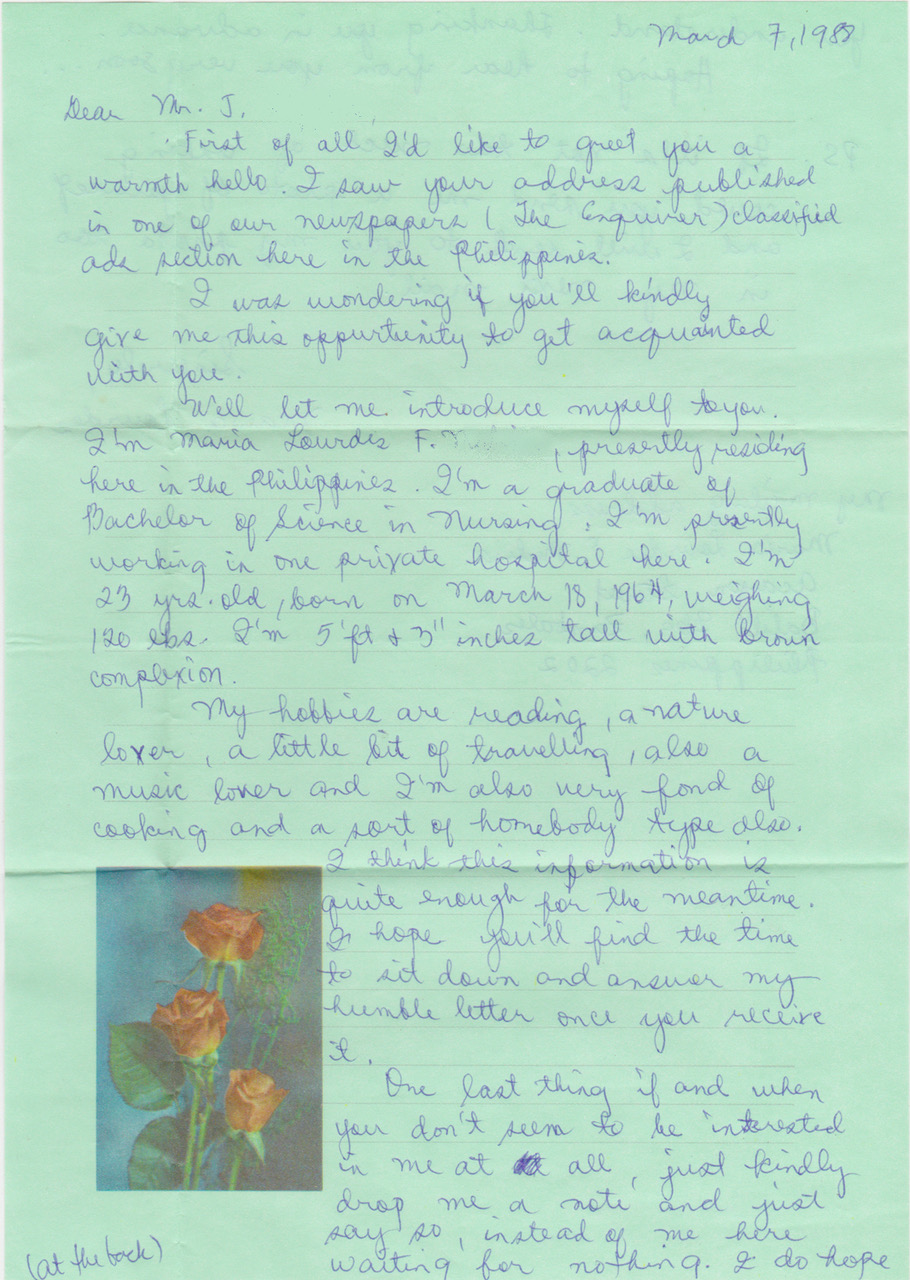 March 7, 1988
Dear Mr. J,
First of all I'd like to greet you a
warmth hello. I saw your address published
in one of our newspapers (The Enquirer) classified
ads section here in the Philippines.
I was wondering if you'll kindly
give me this oppurtunity to get acquainted
with you.
Well let me introduce myself to you.
I'm Maria Lourdes F. , presently residing
here in the Philippines. I'm a graduate of
Bachelor of Science in Nursing. I'm presently
working in one private hospital here. I'm
23 yrs. old, born on March 18, 1964, weighing
120 lbs. I'm 5'ft & 3" inches tall with brown
complexion.
My hobbies are reading, a nature
lover, a little bit of travelling, also a
music lover and I'm also very fond of
cooking and a sort of homebody type also.
I think this information is
quite enough for the meantime.
I hope you'll find the time
to sit down and answer my
humble letter once you receive
it.
One last thing if and when
you don't seem to be interested
in me at all, just kindly
drop me a note and just
say so, instead of me here
waiting for nothing. I do hope
(at the back)